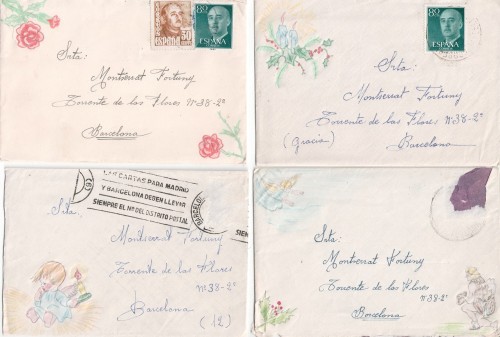 50
ESPAÑA
80
CTS
ESPAÑA
Srta:
Montserrat Fortuny
Torrente de las Flores Nº38-2º
Barcelona
80
CTS
ESPAÑA
Srta:
Montserrat Fortuny
Torrente de las Flores Nº38-2º
(Gracia)
Barcelona
LAS CARTAS PARA MADRID
Y BARCELONA DEBEN LLEVAR
SIEMPRE EL Nº DEL DISTRITO POSTAL
BARCELONA
SIEMPRE
Srta.
Montserrat Fortuny
Torrente de las Flores
Nº38-2º
Barcelona
(12)
Srta:
Montserrat Fortuny
Torrente de las Flores
Nº38-2º
Barcelona